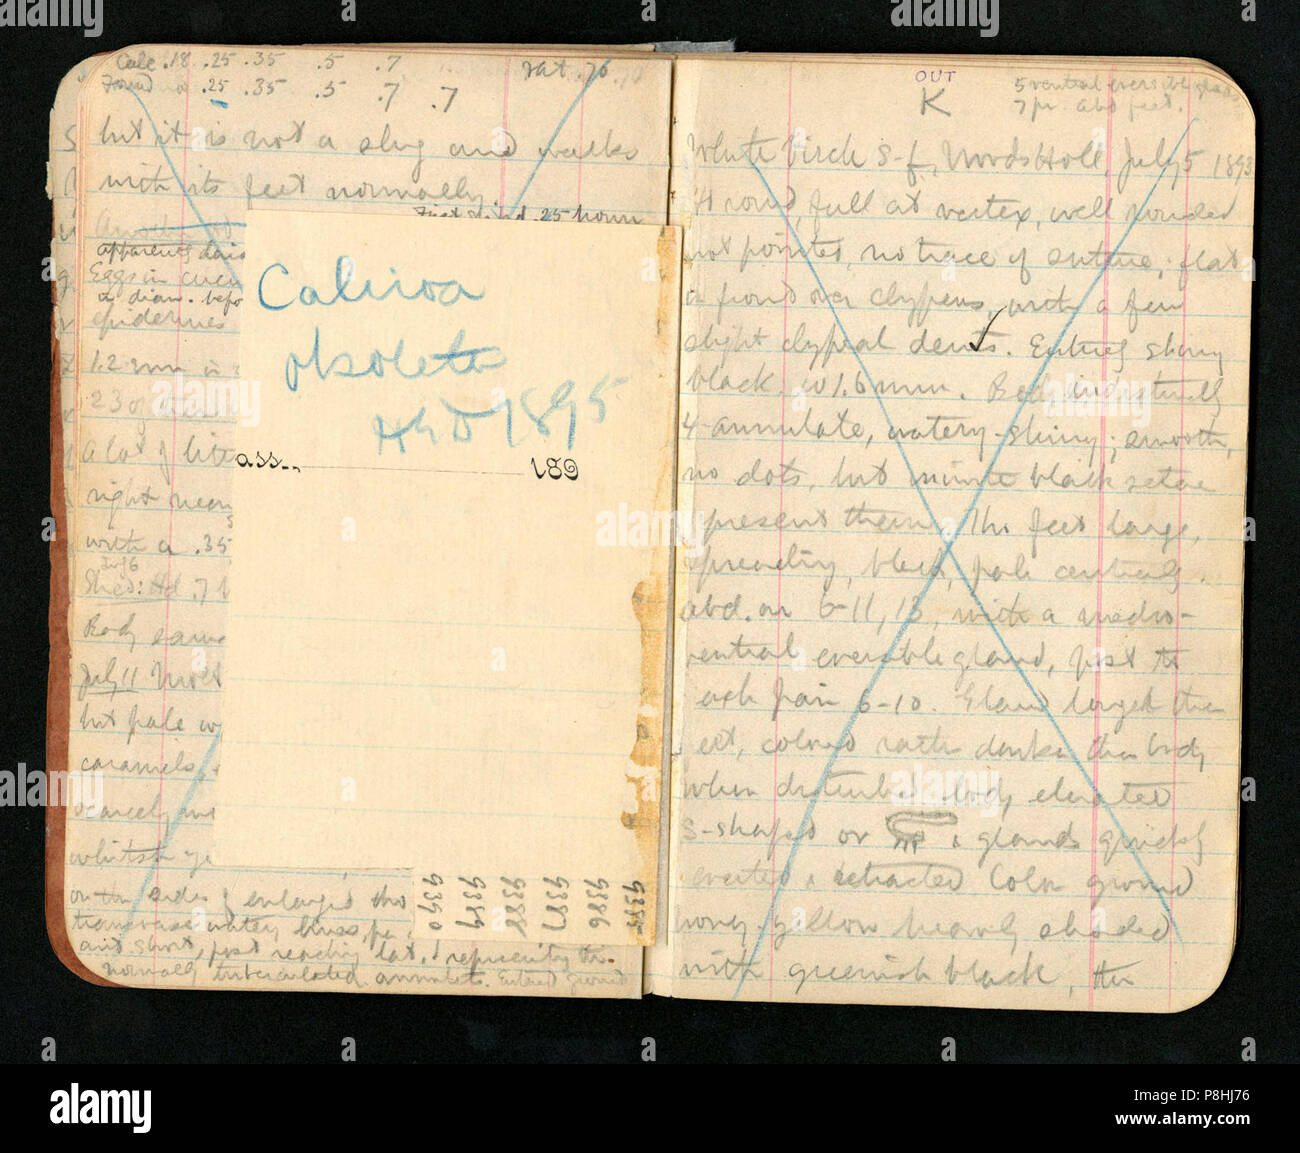 Calc .18 .25 .35 .5 .7
Found .25 .35 .5 .7 .7
but it is not a slug and walks
with its feet normally
apparently
Eggs in
a diam. befo
epidermis
1.2 mm in
23 of these
a lot of litt
right near
with a .35
July 6
Shed: Hd .7
Body same
July 11 Molt
but pale
caramels,
scarcely
whitish ye
on the sides of enlarged tho
transverse watery lines, pe
and short, just reaching lat, & representing the
normally tuberculated annulets. Entire ground
Caliroa
obsoleta
HGD 1895
ass..., 189
9390
9389
9388
9387
9386
9385
OUT
K
5 ventral eversible glands
7 pr. abd feet.
White birch s-f, Woods Holl, July 5 1893
Hd round, full at vertex, well rounded
not pointed, no trace of suture, flat
in front over clypeus, with a few
slight clypeal dents. Entirely shiny
black. w 1.6 mm. Body indistinctly
4-annulate, watery-shiny, smooth,
no dots, but minute black setae
represent them. Th. feet large,
spreading, black, pale centrally.
abd. on 6-11, 13, with a medio-
ventral eversible gland, just to
each pair 6-10. Gland larger than
feet, colored rather darker than body
When disturbed body elevated
S-shaped or & glands quickly
everted & retracted Color ground
honey-yellow heavily shaded
with greenish black, the
a alamy
alamy
Image ID: P8HJ76
www.alamy.com